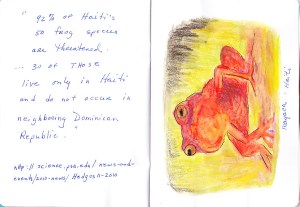 " 92% of Haiti's
50 frog species
are threatened.
... 30 of THOSE
live only in Haiti
and do not occur in
neighboring Dominican
Republic. "
http://science.psu.edu/news-and-
events/2010-news/Hedges11-2010